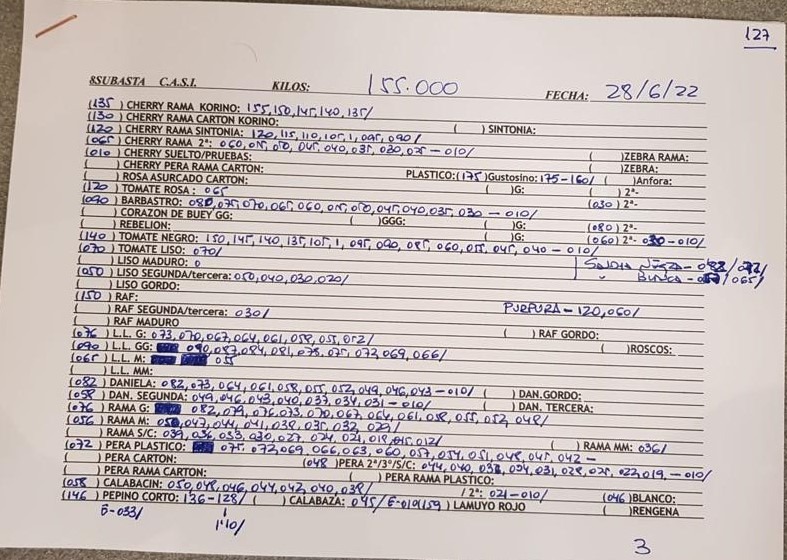 127
&SUBASTA C.A.S.I. KILOS: 155.000 FECHA: 28/6/22
(135 ) CHERRY RAMA KORINO: 155,150,145,140,135/
(130 ) CHERRY RAMA CARTON KORINO:
(120 ) CHERRY RAMA SINTONIA: 120,115,110,105,1,095,090/ ( ) SINTONIA:
(065 ) CHERRY RAMA 2ª: 060,055,050,045,040,035,030,025-010/
(010 ) CHERRY SUELTO/PRUEBAS: ( )ZEBRA RAMA:
( ) CHERRY PERA RAMA CARTON: ( )ZEBRA:
( ) ROSA ASURCADO CARTON: PLASTICO:(175 )Gustosino: 175-160/ ( )Anfora:
(120 ) TOMATE ROSA: 065 ( )G: ( ) 2ª-
(090 ) BARBASTRO: 080,075,070,065,060,055,050,045,040,035,030-010/ (030 ) 2ª-
( ) CORAZON DE BUEY GG: ( )GGG: ( )G:
( ) REBELION: ( )G: (080 ) 2ª-
(140 ) TOMATE NEGRO: 150,145,140,135,105,1,095,090,085,060,055,045,040-010/ (060 ) 2ª- 030-010/
(070 ) TOMATE LISO: 070/
( ) LISO MADURO: 0
(050 ) LISO SEGUNDA/tercera: 050,040,030,020/
( ) LISO GORDO:
(150 ) RAF:
( ) RAF SEGUNDA/tercera: 030/ PURPURA-120,060/
( ) RAF MADURO
(076 ) L.L. G: 073,070,067,064,061,058,055,052/ ( ) RAF GORDO:
(090 ) L.L. GG: 090,087,084,081,078,075,072,069,066/ ( )ROSCOS:
(065 ) L.L. M: 055
( ) L.L. MM:
(082 ) DANIELA: 082,073,064,061,058,055,052,049,046,043-010/ ( ) DAN.GORDO:
(058 ) DAN. SEGUNDA: 049,046,043,040,037,034,031-010/ ( ) DAN. TERCERA:
(076 ) RAMA G: 082,079,076,073,070,067,064,061,058,055,052,048/
(056 ) RAMA M: 050,047,044,041,038,035,032,029/
( ) RAMA S/C: 039,036,033,030,027,024,021,018,015,012/ ( ) RAMA MM: 036/
(072 ) PERA PLASTICO: 075,072,069,066,063,060,057,054,051,048,045,042-
( ) PERA CARTON: (048 )PERA 2ª/3ª/S/C: 044,040,037,034,031,028,025,022,019,-010/
( ) PERA RAMA CARTON: ( ) PERA RAMA PLASTICO:
(058 ) CALABACIN: 050,048,046,044,042,040,038/ /2ª: 021-010/ (046 )BLANCO:
(146 ) PEPINO CORTO: 136-128/ ( ) CALABAZA: 045/E-019(159 ) LAMUYO ROJO ( )RENGENA
E-033/
1'10/
3